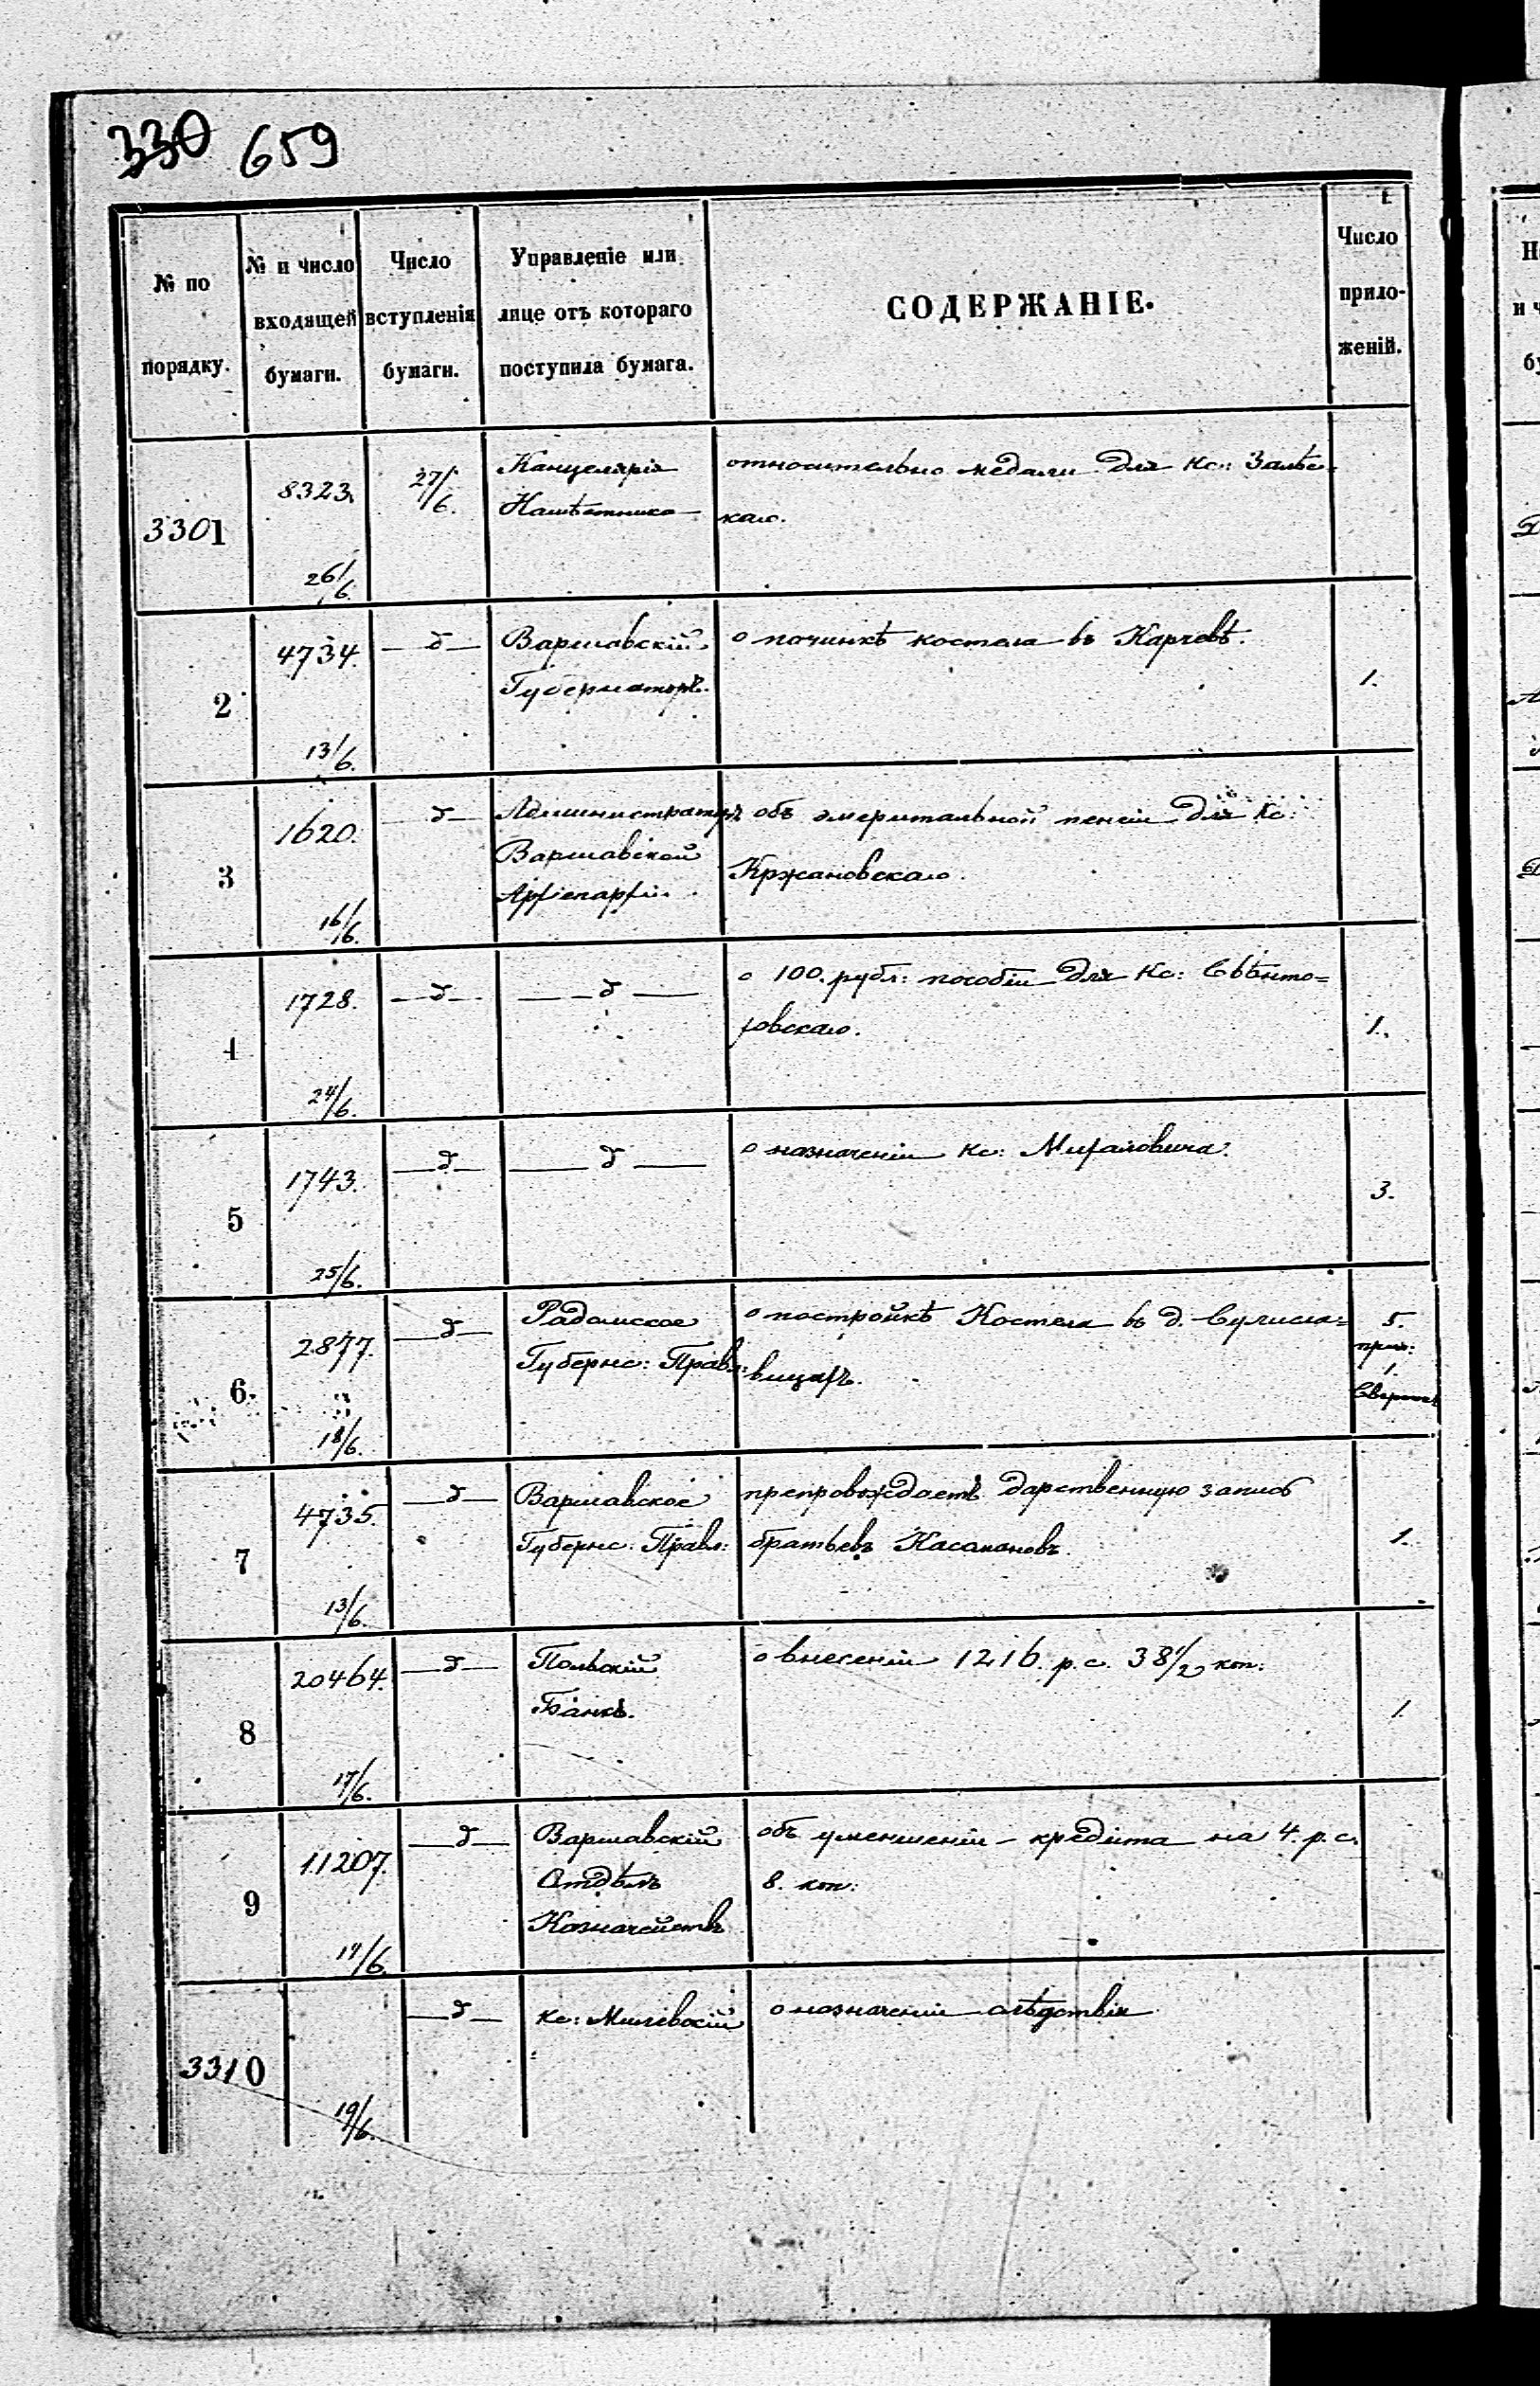 330 659
№ по порядку.
№ и число входящей бумаги.
Число вступленія бумаги.
Управленіе или лице отъ котораго поступила бумага.
СОДЕРЖАНІЕ.
Число прило-
женій.
3301
8323.
26/6.
27/6.
Канцелярія
Намѣстника
относительно медали для Кс: Залѣс-
каго.
2
4734.
13/6.
— д —
Варшавскій
Губернаторъ.
о починкѣ костела въ Карчевѣ.
1.
3
1620.
16/6.
— д —
Администраторъ
Варшавской
Архіепархіи.
объ эмеритальной пенсіи для Кс:
Кржановскаго.
4
1728.
24/6.
— д —
— д —
о 100. рубл: пособіи для Кс: Свѣнто=
ховскаго.
1.
5
1743.
25/6.
— д —
— д —
о назначеніи кс: Михаловича.
3.
6.
2877.
18/6.
— д —
Радомское
Губернс: Правл:
о постройкѣ Костела въ д. Сулисла=
вицахъ.
5.
прил:
1.
7
4735.
13/6.
— д —
Варшавское
Губернс: Правл:
препровождаетъ дарственную запись
братьевъ Касамановъ.
1.
8
20464.
17/6.
— д —
Польскій
Банкъ.
о внесеніи 1216. р. с. 38 1/2 коп:
1
9
11207.
19/6.
— д —
Варшавскій
Отдѣлъ
Казначействъ
объ уменшеніи кредита на 4. р. с.
8. коп:
3310
19/6.
— д —
кс: Милевскій
о назначеніи слѣдствія